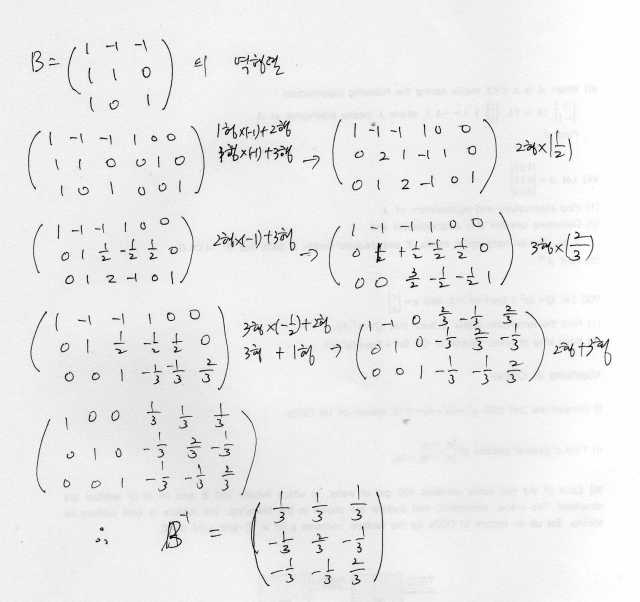 B = ( 1 -1 -1
1 1 0 의 역행렬
1 0 1 )
( 1 -1 -1 1 0 0
1 1 0 0 1 0
1 0 1 0 0 1 ) 1행×(-1)+2행 3행×(-1)+3행 → ( 1 -1 -1 1 0 0
0 2 1 -1 1 0
0 1 2 -1 0 1 ) 2행×(1/2)
( 1 -1 -1 1 0 0
0 1 1/2 -1/2 1/2 0
0 1 2 -1 0 1 ) 2행×(-1)+3행 → ( 1 -1 -1 1 0 0
0 1 +1/2 -1/2 1/2 0
0 0 3/2 -1/2 -1/2 1 ) 3행×(2/3)
( 1 -1 -1 1 0 0
0 1 1/2 -1/2 1/2 0
0 0 1 -1/3 -1/3 2/3 ) 3행×(-1/2)+2행 3행 + 1행 → ( 1 -1 0 2/3 -1/3 2/3
0 1 0 -1/3 2/3 -1/3
0 0 1 -1/3 -1/3 2/3 ) 2행+3행
( 1 0 0 1/3 1/3 1/3
0 1 0 -1/3 2/3 -1/3
0 0 1 -1/3 -1/3 2/3 )
∴ B⁻¹ = ( 1/3 1/3 1/3
-1/3 2/3 -1/3
-1/3 -1/3 2/3 )